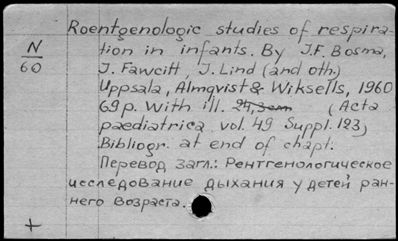 Roentgenologic studies of respira-
N
60
tion in infants. By J.F. Bosma,
J. Fawcitt, J. Lind (and oth.)
Uppsala, Almqvist & Wiksells, 1960
69 p. With ill. 24,3cm (Acta
paediatrica vol. 49 Suppl. 123)
Bibliogr. at end of chapt.
Перевод загл.: Рентгенологическое
исследование дыхания у детей ран-
него возраста.
+